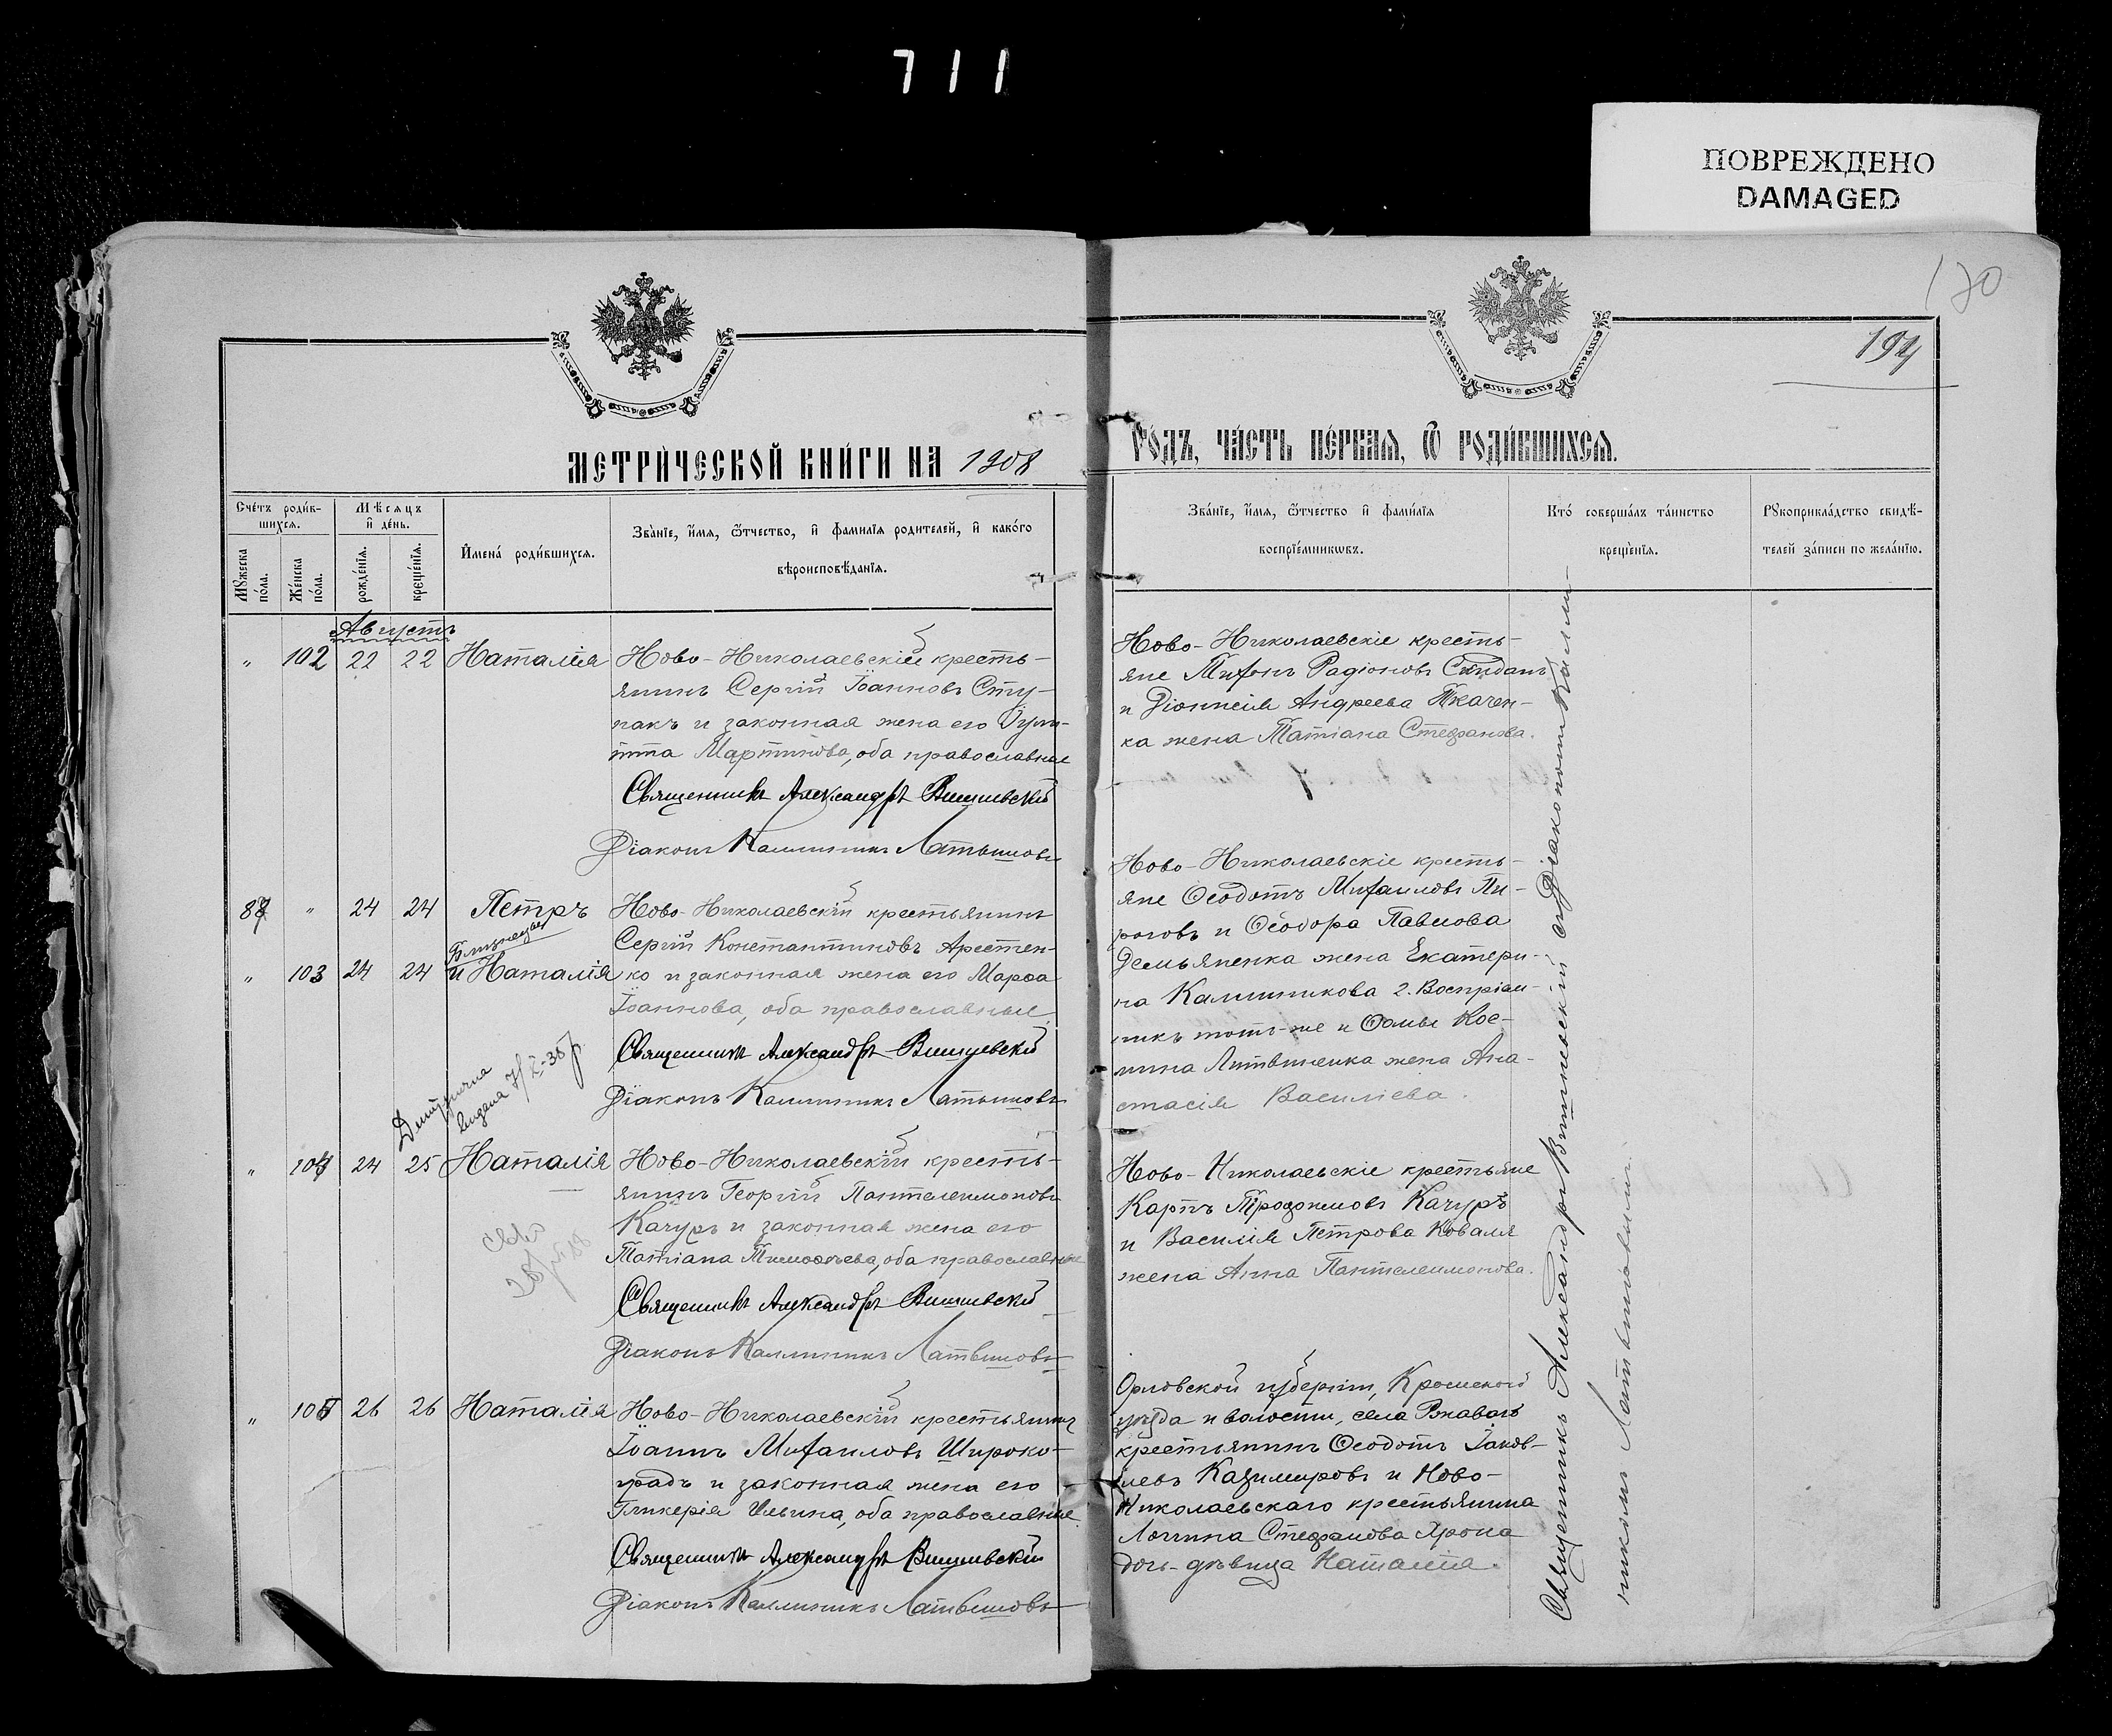 711
ПОВРЕЖДЕНО
DAMAGED
194
МЕТРИ́ЧЕСКОЙ КНИ́ГИ НА 1908
ГО́ДЪ, ЧА́СТЬ ПЕ́РВАЯ, Ѽ РОДИ́ВШИХСЯ.
Сче́тъ роди́в-
шихся.
Мѣсяцъ
и де́нь.
Мꙋжеска
по́ла.
Же́нска
по́ла.
рожде́нїя.
креще́нїя.
И҆мена́ роди́вшихся.
Зва́нїе, и҆́мя, ѻ҆́тчество, и҆ фами́лїя роди́телей, и҆ како́го
вѣроисповѣ́данїя.
Зва́нїе, и҆́мя, ѻ҆́тчество и҆ фами́лїя
воспрїе́мникѡвъ.
Кто́ соверша́лъ та́инство
креще́нїя.
Рꙋкоприкла́дство свидѣ́-
телей за́писи по жела́нїю.
Августъ
" 102 22 22 Наталія
Ново-Николаевскій кресть-
янинъ Сергій Іоанновъ Сту-
пакъ и законная жена его Іули-
тта Мартинова, оба православные
Священникъ Александръ Вишневскій
Діаконъ Каллиникъ Латышовъ
Ново-Николаевскіе кресть-
яне Радіоновъ
и Діонисія Андреева Ткачен-
ка жена Татіана Стефанова.
87 " 24 24 Петръ
Близнецы
" 103 24 24 и Наталія
Ново-Николаевскій крестьянинъ
Сергій Константиновъ Арестен-
ко и законная жена его Марѳа
Іоаннова, оба православные.
Священникъ Александръ Вишневскій
Діаконъ Каллиникъ Латышовъ
Ново-Николаевскіе кресть-
яне Ѳеодотъ Михаиловъ Пи-
роговъ и Ѳеодора Павлова
Демьяненка жена Екатери-
на Каллиникова 2. Воспріем-
никъ тотъ-же и Ѳомы Кос-
мина Литвиненка жена Ана-
стасія Василіева.
видана 7/X-38 р
" 104 24 25 Наталія
Ново-Николаевскій кресть-
янинъ Георгій Пантелеимоновъ
Качуръ и законная жена его
Татіана Тимоѳѣева, оба православные
Священникъ Александръ Вишневскій
Діаконъ Каллиникъ Латышовъ
Ново-Николаевскіе крестьяне
Карпъ Трофимовъ Качуръ
и Василія Петрова Коваля
жена Анна Пантелеимонова.
" 105 26 26 Наталія
Ново-Николаевскій крестьянинъ
Іоаннъ Михаиловъ Широко-
градъ и законная жена его
Гликерія Ильина, оба православные.
Священникъ Александръ Вишневскій
Діаконъ Каллиникъ Латышовъ
Орловской губерніи, Кромскаго
уѣзда и волости, села Ржаваго
крестьянинъ Ѳеодотъ Іаков-
левъ Казимировъ и Ново-
Николаевскаго крестьянина
Логгина Стефанова Ярона
дочь-дѣвица Наталія.
Священникъ Александръ Вишневскій съ Діакономъ Калли-
никомъ Латышовымъ.